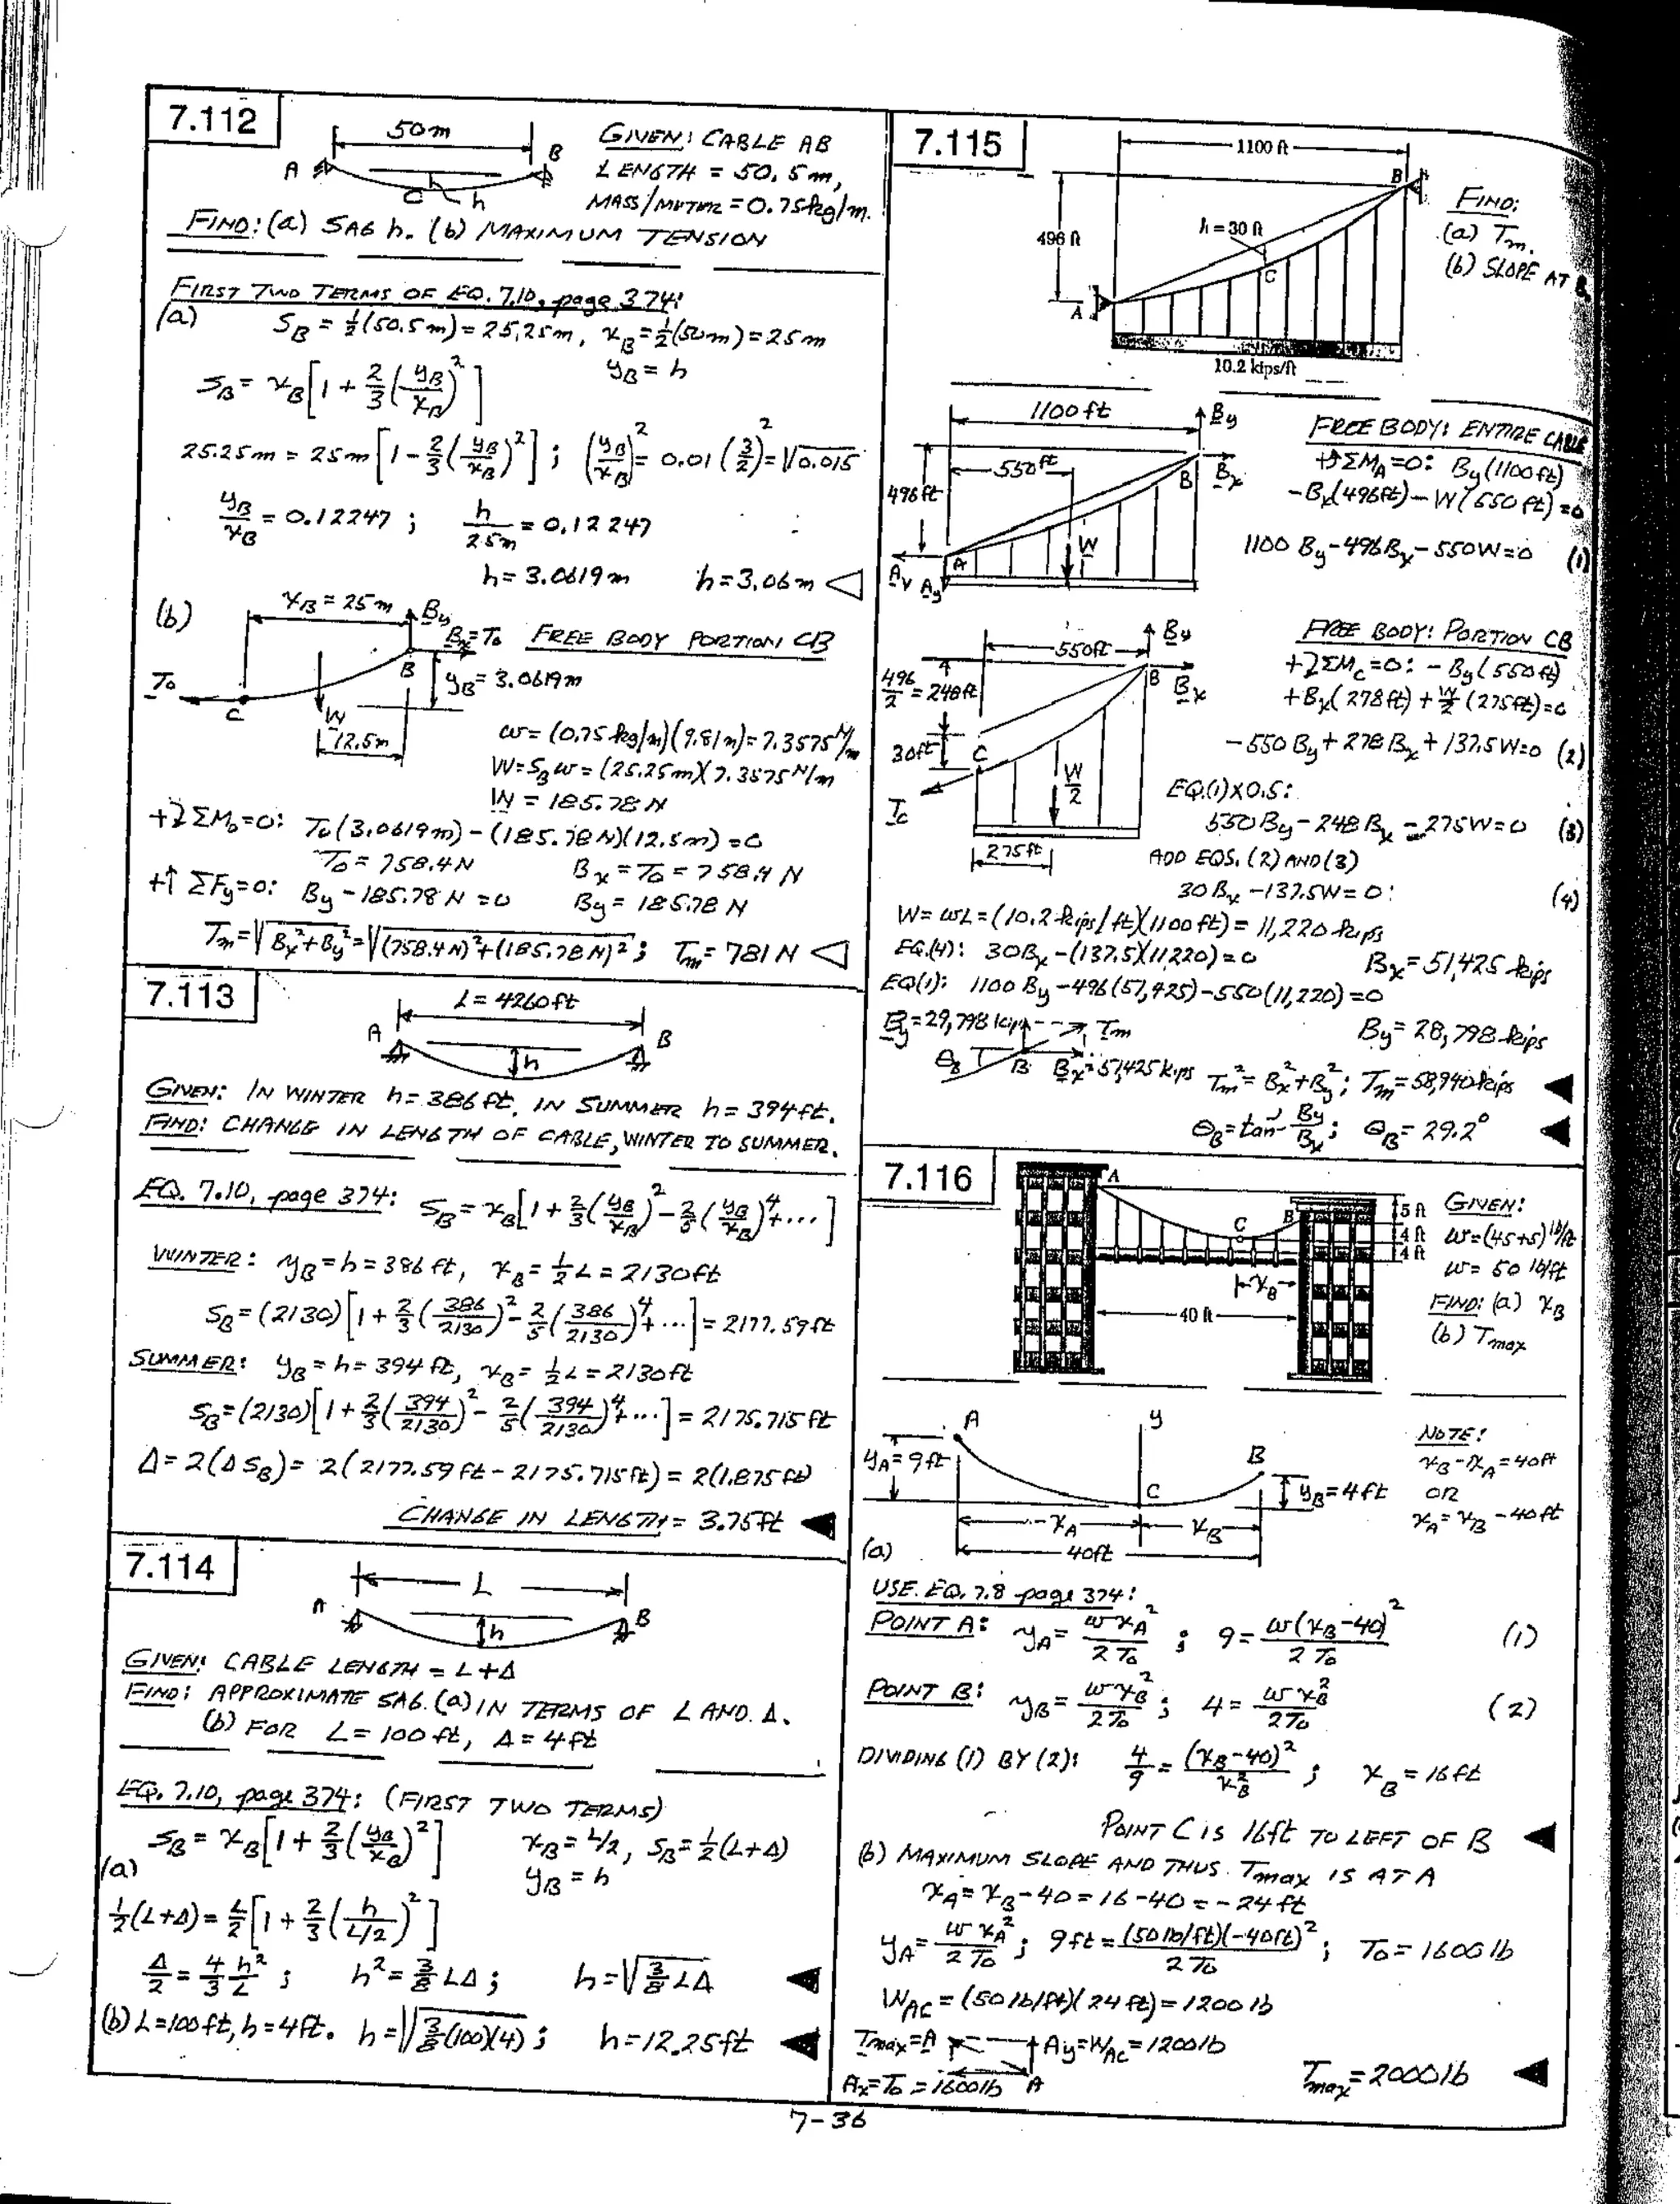 7.112
50m
A
B
C
h
GIVEN: CABLE AB
LENGTH = 50.5m,
MASS/METER = 0.75kg/m.
FIND: (a) SAG h. (b) MAXIMUM TENSION
FIRST TWO TERMS OF EQ. 7.10, page 374:
(a) S_B = ½(50.5m) = 25.25m, x_B = ½(50m) = 25m
y_B = h
S_B = x_B[1 + 2/3 (y_B/x_B)²]
25.25m = 25m [1 - 2/3 (y_B/x_B)²] ; (y_B/x_B)² = 0.01 (3/2) = √0.015
y_B/x_B = 0.12247 ; h/25m = 0.12247
h = 3.0619m h = 3.06m
(b)
x_B = 25m
B_y
B_x = T_0 FREE BODY PORTION CB
B
y_B = 3.0619m
T_0
C
W
12.5m
w = (0.75 kg/m)(9.81 m) = 7.3575 N/m
W = S_B w = (25.25m)(7.3575 N/m
W = 185.78 N
+ΣM_B=0: T_0(3.0619m) - (185.78N)(12.5m) = 0
T_0 = 758.4N B_x = T_0 = 758.4 N
+↑ ΣF_y=0: B_y - 185.78 N = 0 B_y = 185.78 N
T_m = √(B_x² + B_y²) = √((758.4N)² + (185.78N)²) ; T_m = 781 N
7.113
L = 4260ft
A
B
h
GIVEN: IN WINTER h = 386 ft, IN SUMMER h = 394ft.
FIND: CHANGE IN LENGTH OF CABLE, WINTER TO SUMMER.
EQ. 7.10, page 374: S_B = x_B[1 + 2/3 (y_B/x_B)² - 2/5 (y_B/x_B)⁴ + ···]
WINTER: y_B = h = 386 ft, x_B = ½L = 2130ft
S_B = (2130)[1 + 2/3 (386/2130)² - 2/5 (386/2130)⁴ + ···] = 2177.59ft
SUMMER: y_B = h = 394 ft, x_B = ½L = 2130ft
S_B = (2130)[1 + 2/3 (394/2130)² - 2/5 (394/2130)⁴ + ···] = 2175.715ft
Δ = 2(ΔS_B) = 2(2177.59ft - 2175.715ft) = 2(1.875ft)
CHANGE IN LENGTH = 3.75ft
7.114
L
A
B
h
GIVEN: CABLE LENGTH = L+Δ
FIND: APPROXIMATE SAG. (a) IN TERMS OF L AND Δ.
(b) FOR L = 100 ft, Δ = 4ft
EQ. 7.10, page 374: (FIRST TWO TERMS)
(a) S_B = x_B[1 + 2/3 (y_B/x_B)²] x_B = L/2, S_B = ½(L+Δ)
y_B = h
½(L+Δ) = L/2 [1 + 2/3 (h/(L/2))²]
Δ/2 = 4/3 h²/L ; h² = 3/8 LΔ ; h = √(3/8 LΔ)
(b) L=100ft, h=4ft. h = √(3/8 (100)(4)) ; h = 12.25ft
7.115
1100 ft
B
FIND:
(a) T_m.
(b) SLOPE AT B.
h = 30 ft
496 ft
C
A
10.2 kips/ft
1100ft
B_y
FREE BODY: ENTIRE CABLE
+ΣM_A=0: B_y(1100ft)
-B_x(496ft) - W(550ft) = 0
550ft
B
B_x
496ft
W
A
A_x
A_y
1100 B_y - 496B_x - 550W = 0 (1)
FREE BODY: PORTION CB
+ΣM_C=0: -B_y(550ft)
+B_x(278ft) + W/2 (275ft) = 0
550ft
B_y
496/2 = 248ft
B
B_x
30ft
C
T_c
W/2
275ft
-550 B_y + 278 B_x + 137.5W = 0 (2)
EQ.(1)X0.5:
550B_y - 248 B_x - 275W = 0 (3)
ADD EQS. (2) AND (3)
30B_x - 137.5W = 0: (4)
W = wL = (10.2 kips/ft)(1100ft) = 11,220 kips
EQ.(4): 30B_x - (137.5)(11,220) = 0 B_x = 51,425 kips
EQ(1): 1100 B_y - 496(51,425) - 550(11,220) = 0
B_y = 29,798 kips
T_m
B_y = 28,798 kips
θ_B
B
B_x = 51,425 kips
T_m² = B_x² + B_y² ; T_m = 58,940 kips
θ_B = tan⁻¹ B_y/B_x ; θ_B = 29.2°
7.116
A
C
B
5 ft
4 ft
4 ft
x_B
40 ft
GIVEN:
w = (45+5) lb/ft
w = 50 lb/ft
FIND: (a) x_B
(b) T_max
A
y
y_A = 9ft
B
C
y_B = 4ft
x_A
x_B
40ft
NOTE:
x_B - x_A = 40ft
OR
x_A = x_B - 40ft
(a)
USE. EQ. 7.8 page 374:
POINT A: y_A = w x_A²/2T_0 ; 9 = w(x_B-40)²/2T_0 (1)
POINT B: y_B = w x_B²/2T_0 ; 4 = w x_B²/2T_0 (2)
DIVIDING (1) BY (2): 4/9 = (x_B-40)²/x_B² ; x_B = 16ft
POINT C IS 16ft TO LEFT OF B
(b) MAXIMUM SLOPE AND THUS T_max IS AT A
x_A = x_B - 40 = 16 - 40 = -24ft
y_A = w x_A²/2T_0 ; 9ft = (50 lb/ft)(-40ft)²/2T_0 ; T_0 = 1600 lb
W_AC = (50 lb/ft)(24 ft) = 1200 lb
T_max = A
A_y = W_AC = 1200lb
A_x = T_0 = 1600lb A
T_max = 2000lb
7-36